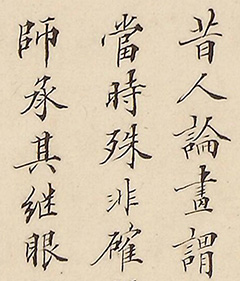 昔人論畫謂
當時殊非確
師承其継眼